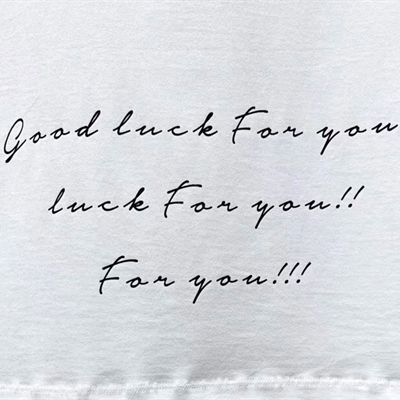 Good luck For you
luck For you!!
For you!!!